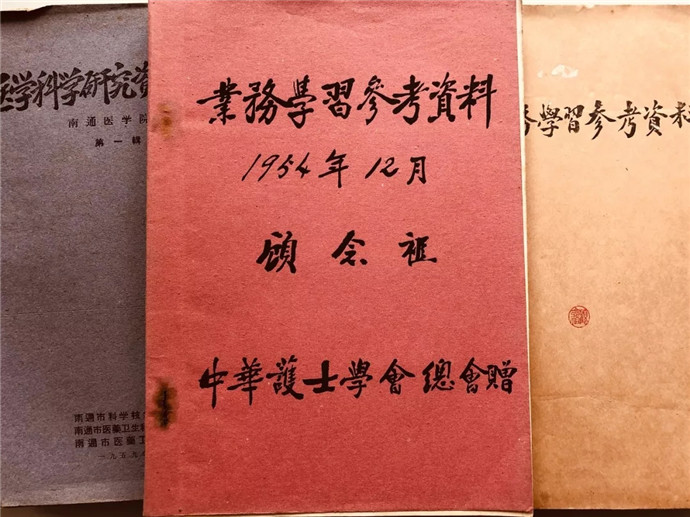 医学科学研究资
南通医学院
第一辑
南通市科学技
南通市医药卫生
南通市医药卫
一九五九年
業務學習參考資料
1954年12月
顧念祖
中華護士學會總會贈
務學習參考資料